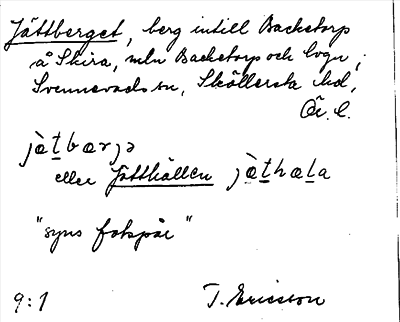 Jättberget, berg intill Backetorp
å Skira, mln Backetorp och Logn;
Svennevads sn, Sköllersta hd,
Ör. l.
jät̠bærjə
eller Jätthällen jät̠hæl̠a
"syns fotspår"
9:1 T. Ericsson